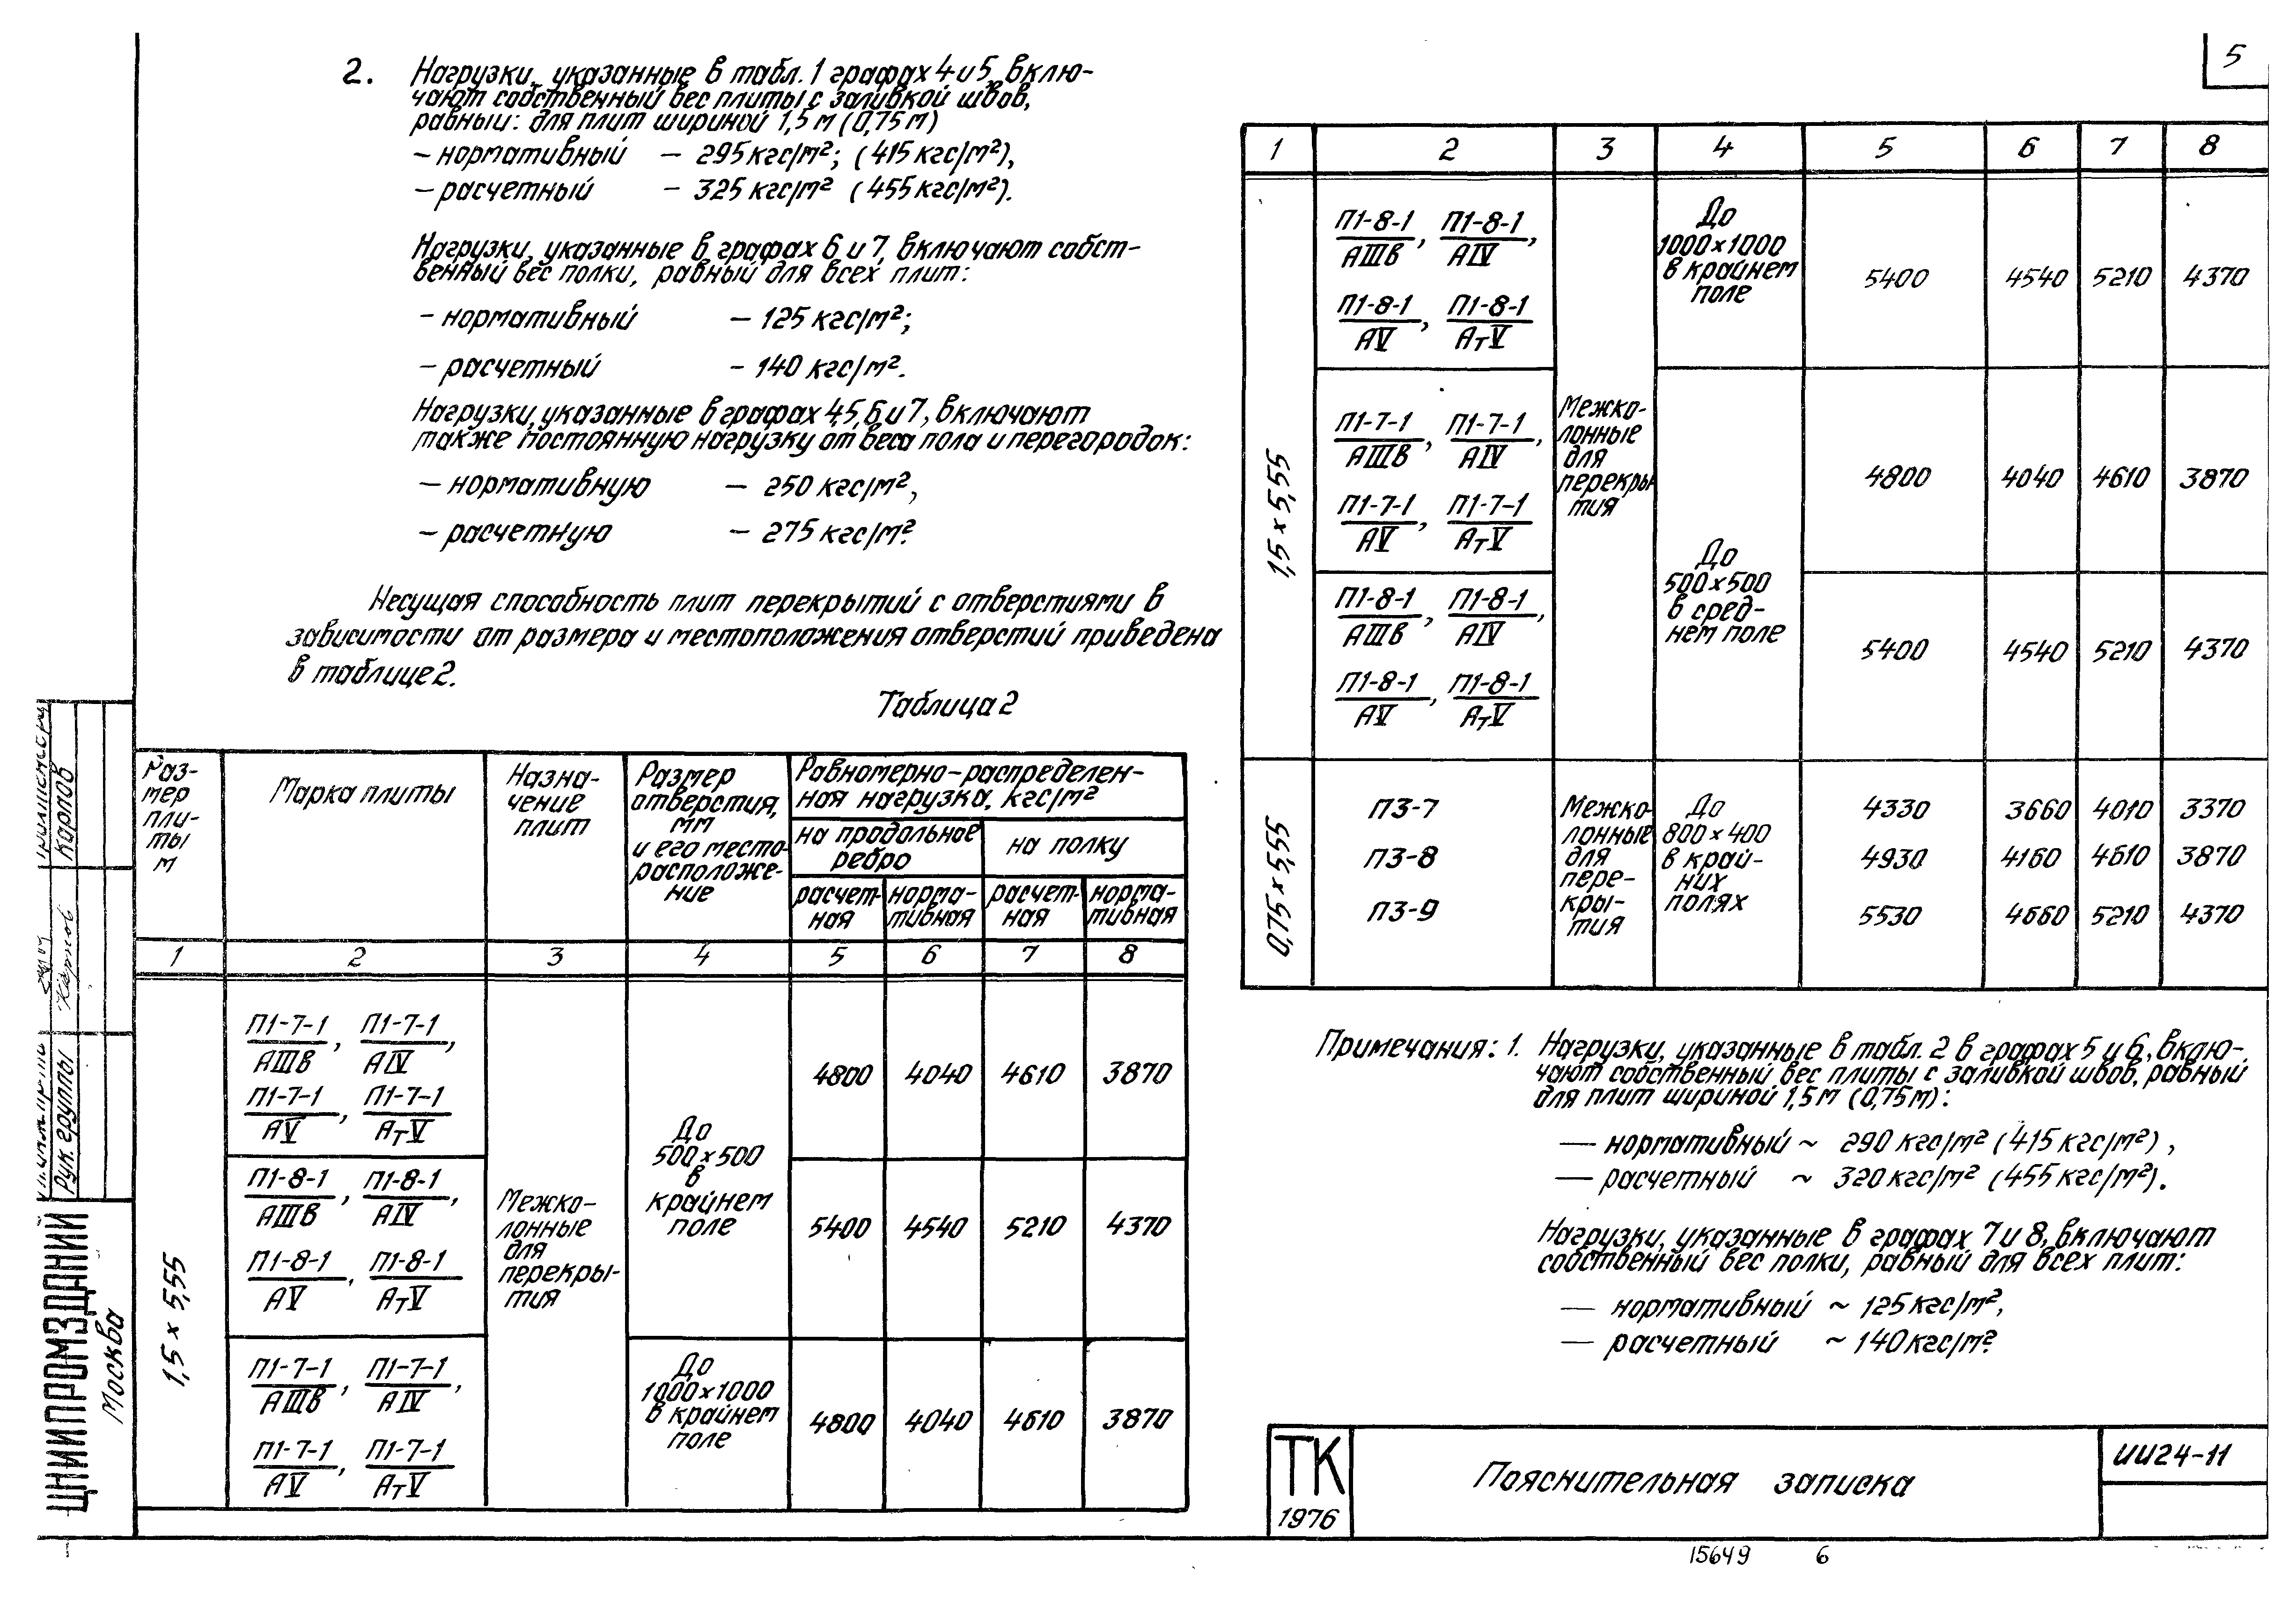 5
2. Нагрузки, указанные в табл. 1 графах 4 и 5, вклю-
чают собственный вес плиты с заливкой швов,
равный: для плит шириной 1,5 м (0,75 м)
– нормативный – 295 кгс/м²; (415 кгс/м²),
– расчетный – 325 кгс/м² (455 кгс/м²).
Нагрузки, указанные в графах 6 и 7, включают собст-
венный вес полки, равный для всех плит:
– нормативный – 125 кгс/м²;
– расчетный – 140 кгс/м².
Нагрузки, указанные в графах 4,5,6 и 7, включают
также постоянную нагрузку от веса пола и перегородок:
– нормативную – 250 кгс/м²,
– расчетную – 275 кгс/м².
Несущая способность плит перекрытий с отверстиями в
зависимости от размера и местоположения отверстий приведена
в таблице 2.
Таблица 2
Раз-
мер
пли-
ты
м
Марка плиты
Назна-
чение
плит
Размер
отверстия,
мм
и его место-
расположе-
ние
Равномерно-распределен-
ная нагрузка, кгс/м²
на продольное
ребро
на полку
расчет-
ная
норма-
тивная
расчет-
ная
норма-
тивная
1 2 3 4 5 6 7 8
1,5 × 5,55
П1-7-1/АШВ, П1-7-1/АIV,
П1-7-1/АV, П1-7-1/АтV
П1-8-1/АШВ, П1-8-1/АIV,
П1-8-1/АV, П1-8-1/АтV
П1-7-1/АШВ, П1-7-1/АIV,
П1-7-1/АV, П1-7-1/АтV
Межко-
лонные
для
перекры-
тия
До
500×500
в
крайнем
поле
До
1000×1000
в крайнем
поле
4800 4040 4610 3870
5400 4540 5210 4370
4800 4040 4610 3870
1 2 3 4 5 6 7 8
1,5 × 5,55
П1-8-1/АШВ, П1-8-1/АIV,
П1-8-1/АV, П1-8-1/АтV
П1-7-1/АШВ, П1-7-1/АIV,
П1-7-1/АV, П1-7-1/АтV
П1-8-1/АШВ, П1-8-1/АIV,
П1-8-1/АV, П1-8-1/АтV
Межко-
лонные
для
перекры
тия
До
1000×1000
в крайнем
поле
До
500×500
в сред-
нем поле
5400 4540 5210 4370
4800 4040 4610 3870
5400 4540 5210 4370
0,75 × 5,55
П3-7
П3-8
П3-9
Межко-
лонные
для
пере-
кры-
тия
До
800×400
в край-
них
полях
4330 3660 4010 3370
4930 4160 4610 3870
5530 4660 5210 4370
Примечания: 1. Нагрузки, указанные в табл. 2 в графах 5 и 6, вклю-
чают собственный вес плиты с заливкой швов, равный
для плит шириной 1,5 м (0,75 м):
— нормативный ~ 290 кгс/м² (415 кгс/м²),
— расчетный ~ 320 кгс/м² (455 кгс/м²).
Нагрузки, указанные в графах 7 и 8, включают
собственный вес полки, равный для всех плит:
— нормативный ~ 125 кгс/м²,
— расчетный ~ 140 кгс/м².
ТК
1976
Пояснительная записка
ИИ24-11
15649 6
Карпов
Рук. группы
ЦНИИПРОМЗДАНИЙ
Москва